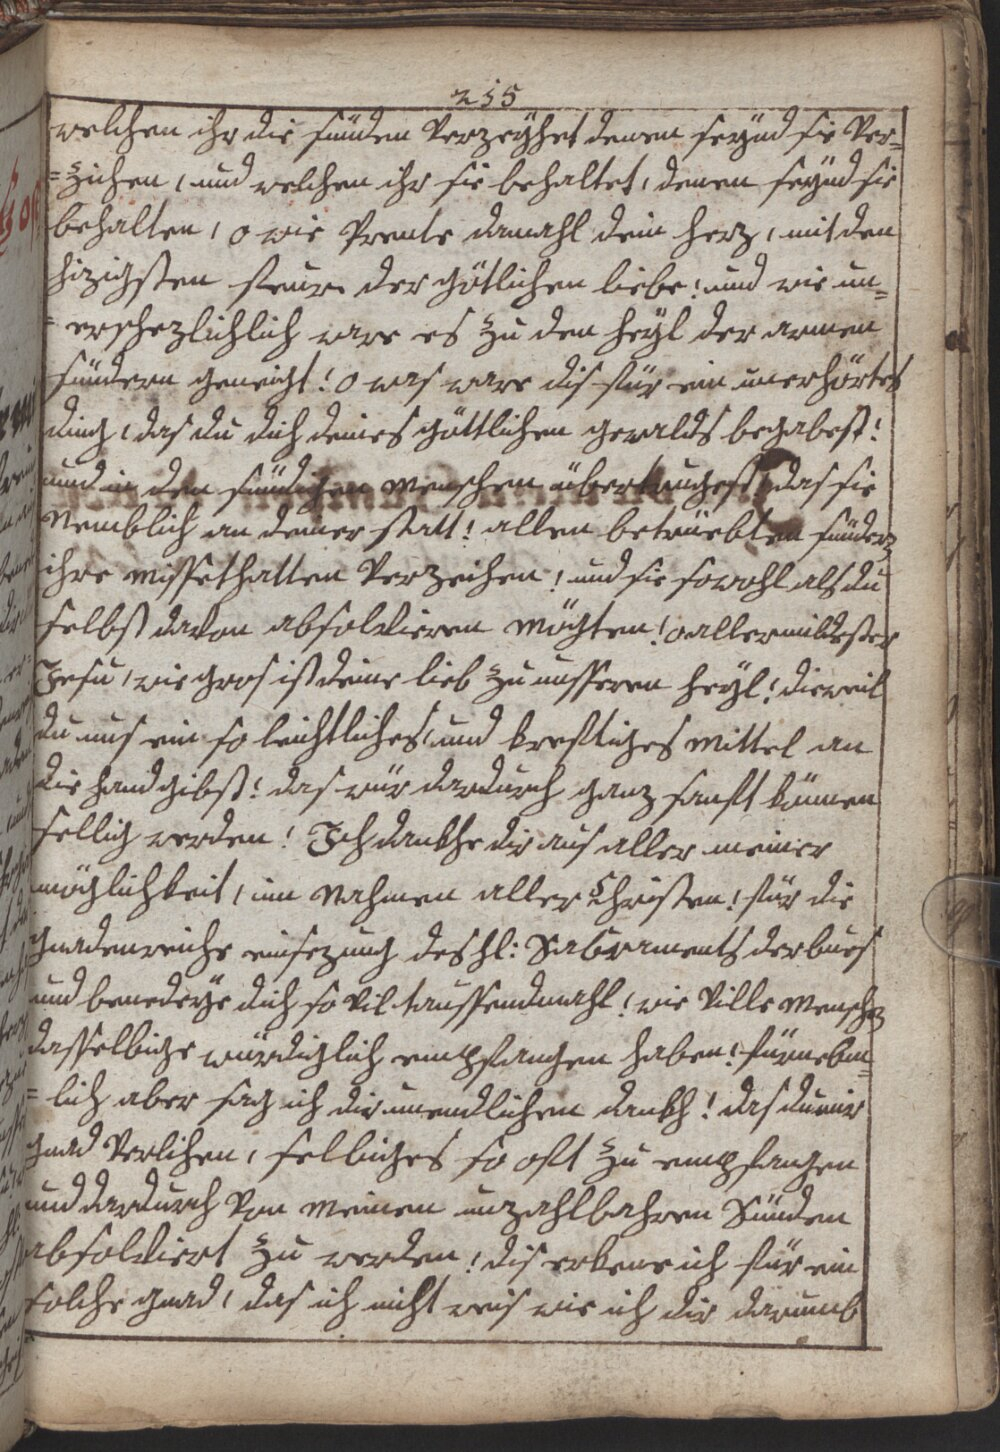 255
welchen ihr die sünden Verzeÿhet denen seÿnd sie Ver=
=zichen, und welchen ihr sie behaltet, denen seÿnd sie
behalten, o wie Prente damahl dein herz, mit den
hizigsten feur der götlichen liebe! und wie un=
=erschezlichlich ware es zu den heÿl der armen
sündern geneigt! o was ware dis für ein unerhörtes
ding! das du dich deines göttlichen gewalds begabest!
und in den sündigen menschen übertrugest, das sie
Nemblich an deiner statt! allen betrüebten sünder
ihre missethatten Verzeihen! und sie sowohl als du
selbst davon absolvieren mögten! o allermildester
Jesu, wie gros ist deine lieb zu unsseren heÿl! dieweil
du uns ein so leichtliches, und kreftiges mittel an
die hand gibst! das wür dardurch ganz sanft können
sellig werden! Ich dankhe dir aus aller meiner
möglichkeit, im Nahmen aller Christen! für die
gnadenreiche einsezung des hl: Sacraments der bues
und benedeÿe dich so vil taussendmahl! wie Ville menschen
dasselbige würdiglich empfangen haben! fürnebm=
=lich aber sag ich dir unendlichen dankh! das du mir
gnad Verlihen, selbiges so oft zu empfangen
und dardurch Von meinen unzahlbahren Sünden
absolviert zu werden! dis erkene ich für ein
solche gnad, das ich nicht weis wie ich dir darumb